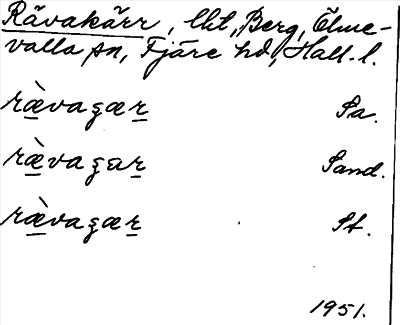 Rävakärr, lht, Berg, Ölme-
valla sn, Fjäre hd, Hall. l.
rævagær Sa.
rævagar Sand.
rævagær St.
1951.